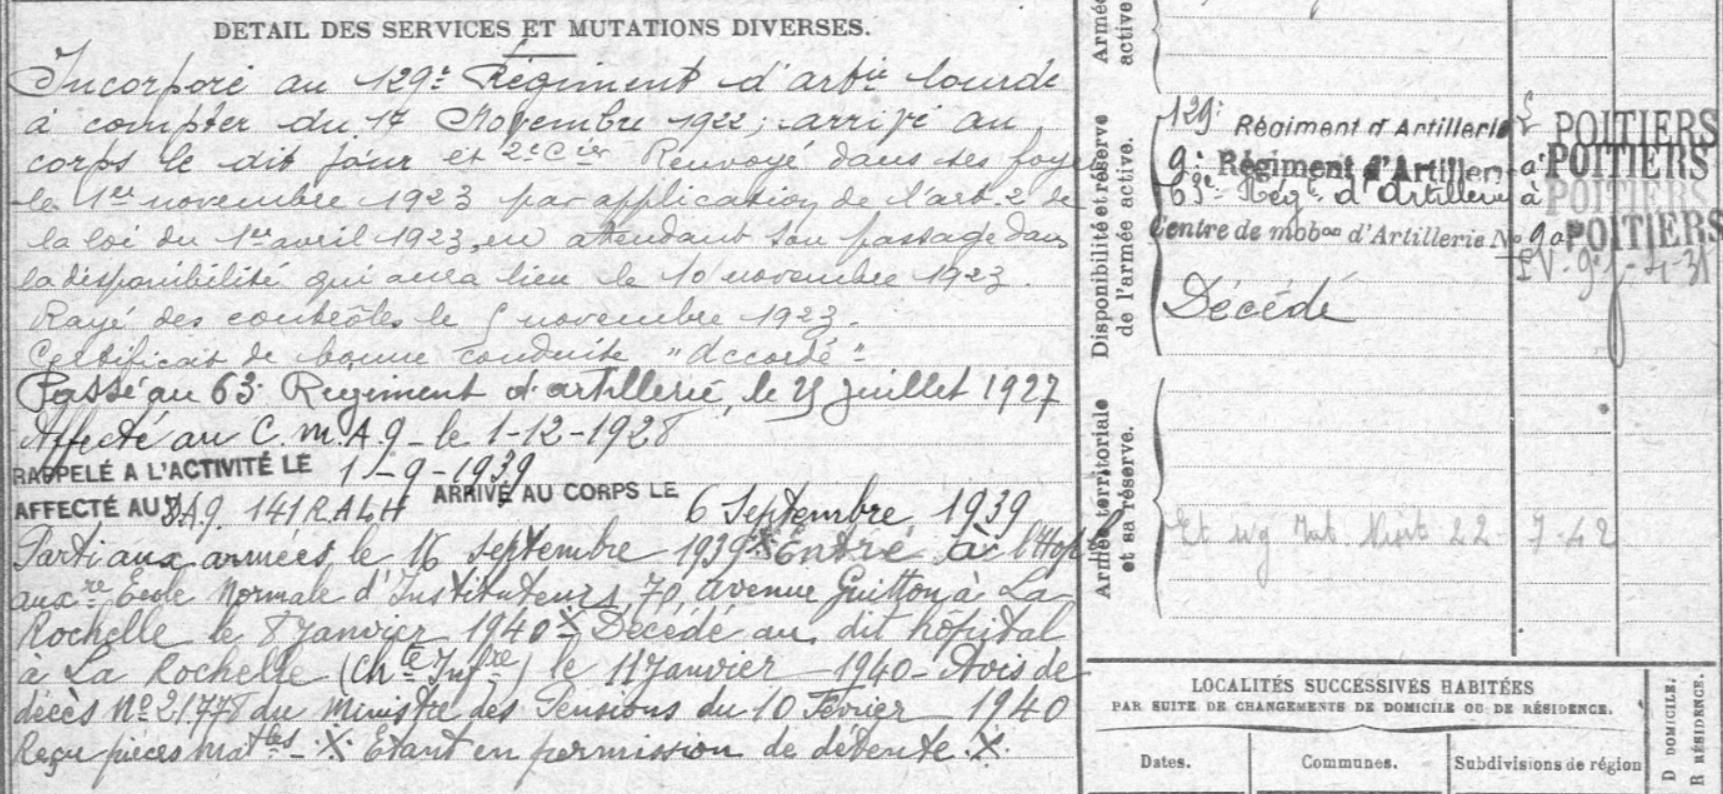 DETAIL DES SERVICES ET MUTATIONS DIVERSES.
Incorporé au 129e Régiment d'artie lourde
à compter du 17 Novembre 1922; arrivé au
corps le dit jour et 2e Cier Renvoyé dans ses foyers
le 1er novembre 1923 par application de l'art. 2 de
la loi du 1er avril 1923, en attendant son passage dans
la disponibilité qui aura lieu le 10 novembre 1923.
Rayé des contrôles le novembre 1923.
Certificat de bonne conduite "Accordé"
Passé au 63e Régiment d'artillerie, le juillet 1927
Affecté au C.M.A.9 - le 1-12-1928
RAPPELÉ A L'ACTIVITÉ LE 1-9-1939
AFFECTÉ AU D.A.9. 141 R.A.L.H ARRIVÉ AU CORPS LE 6 Septembre 1939
Parti aux armées, le 16 septembre 1939 X Entré à l'Hopl
auxre Ecole Normale d'Instituteurs, 70, avenue Guitton à La
Rochelle le 8 Janvier 1940 X Décédé au dit hôpital
à La Rochelle (Chte Infre) le 11 Janvier 1940 - Avis de
décès No 21778 du Ministre des Pensions du 10 Février 1940
Reçu pièces matles - X Etant en permission de détente. X
Armée active
Disponibilité et réserve de l'armée active.
129e Régiment d'Artillerie à POITIERS
9e Régiment d'Artillerie à POITIERS
63e Régt d'Artillerie à POITIERS
Centre de mobon d'Artillerie No 9 à POITIERS
Décédé
Armée territoriale et sa réserve.
22-7-42
LOCALITÉS SUCCESSIVES HABITÉES
PAR SUITE DE CHANGEMENTS DE DOMICILE OU DE RÉSIDENCE.
Dates.
Communes.
Subdivisions de région
D DOMICILE.
R RÉSIDENCE.